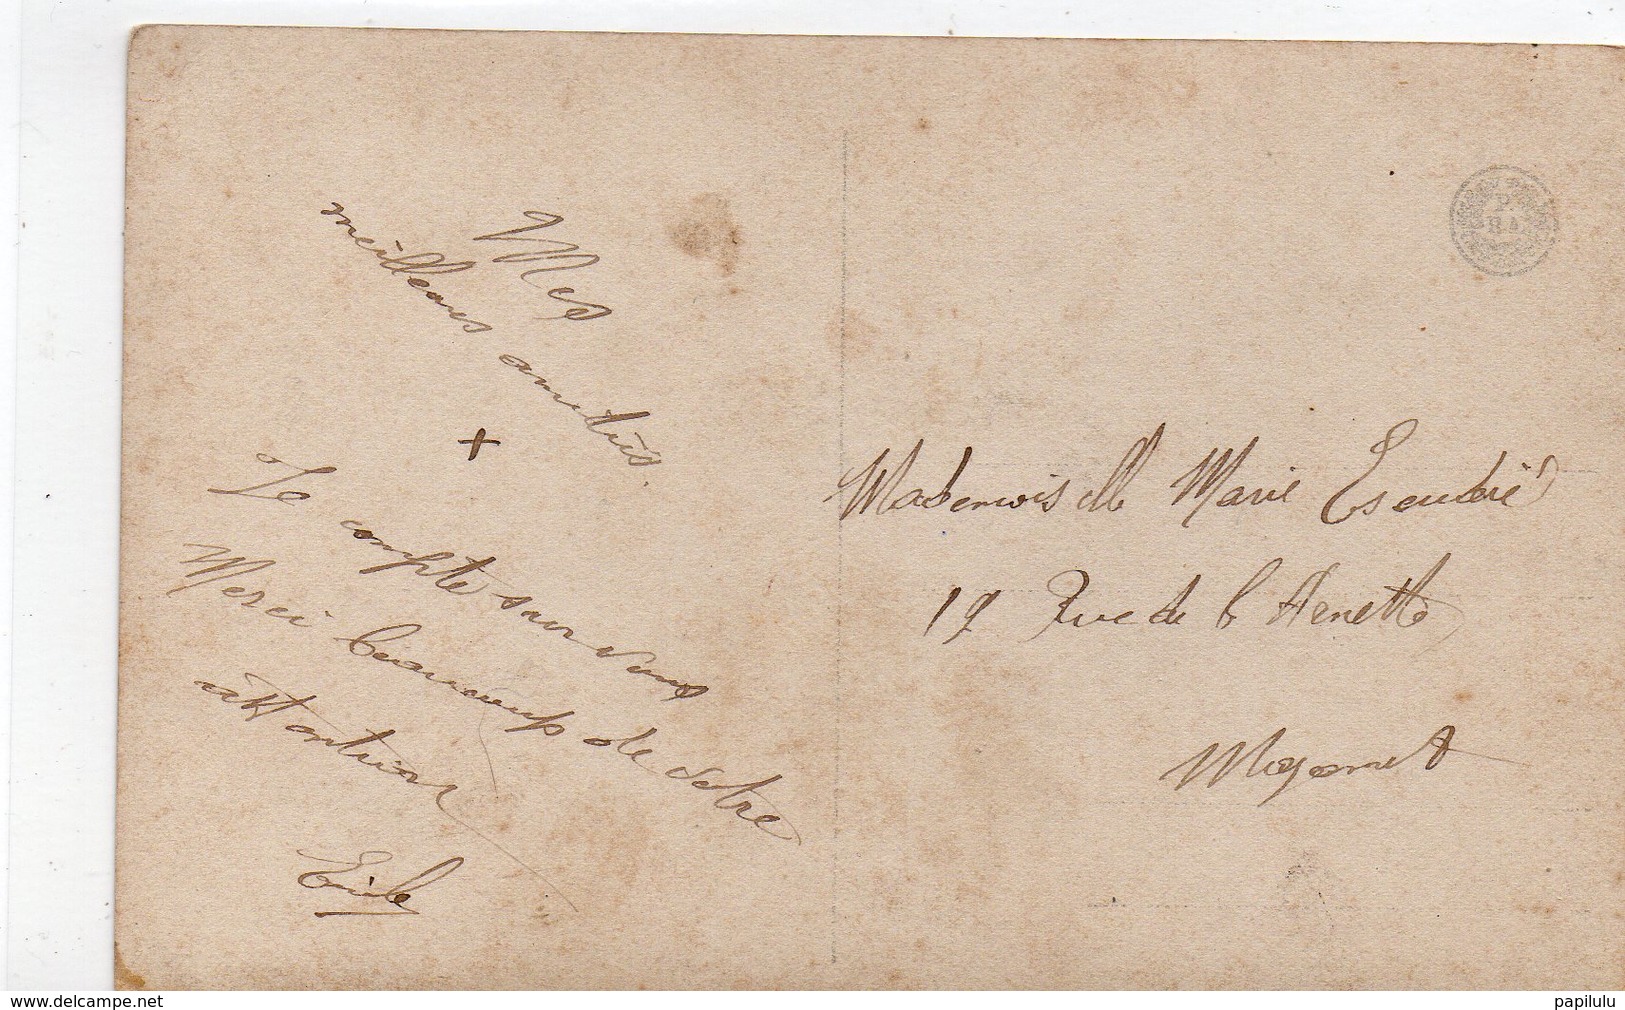 Mes
meilleures amitiés.
+
Je compte sur vous
Merci beaucoup de votre
attention
Mademoiselle Marie Escudié
19 Rue de
P.
www.delcampe.net
papilulu